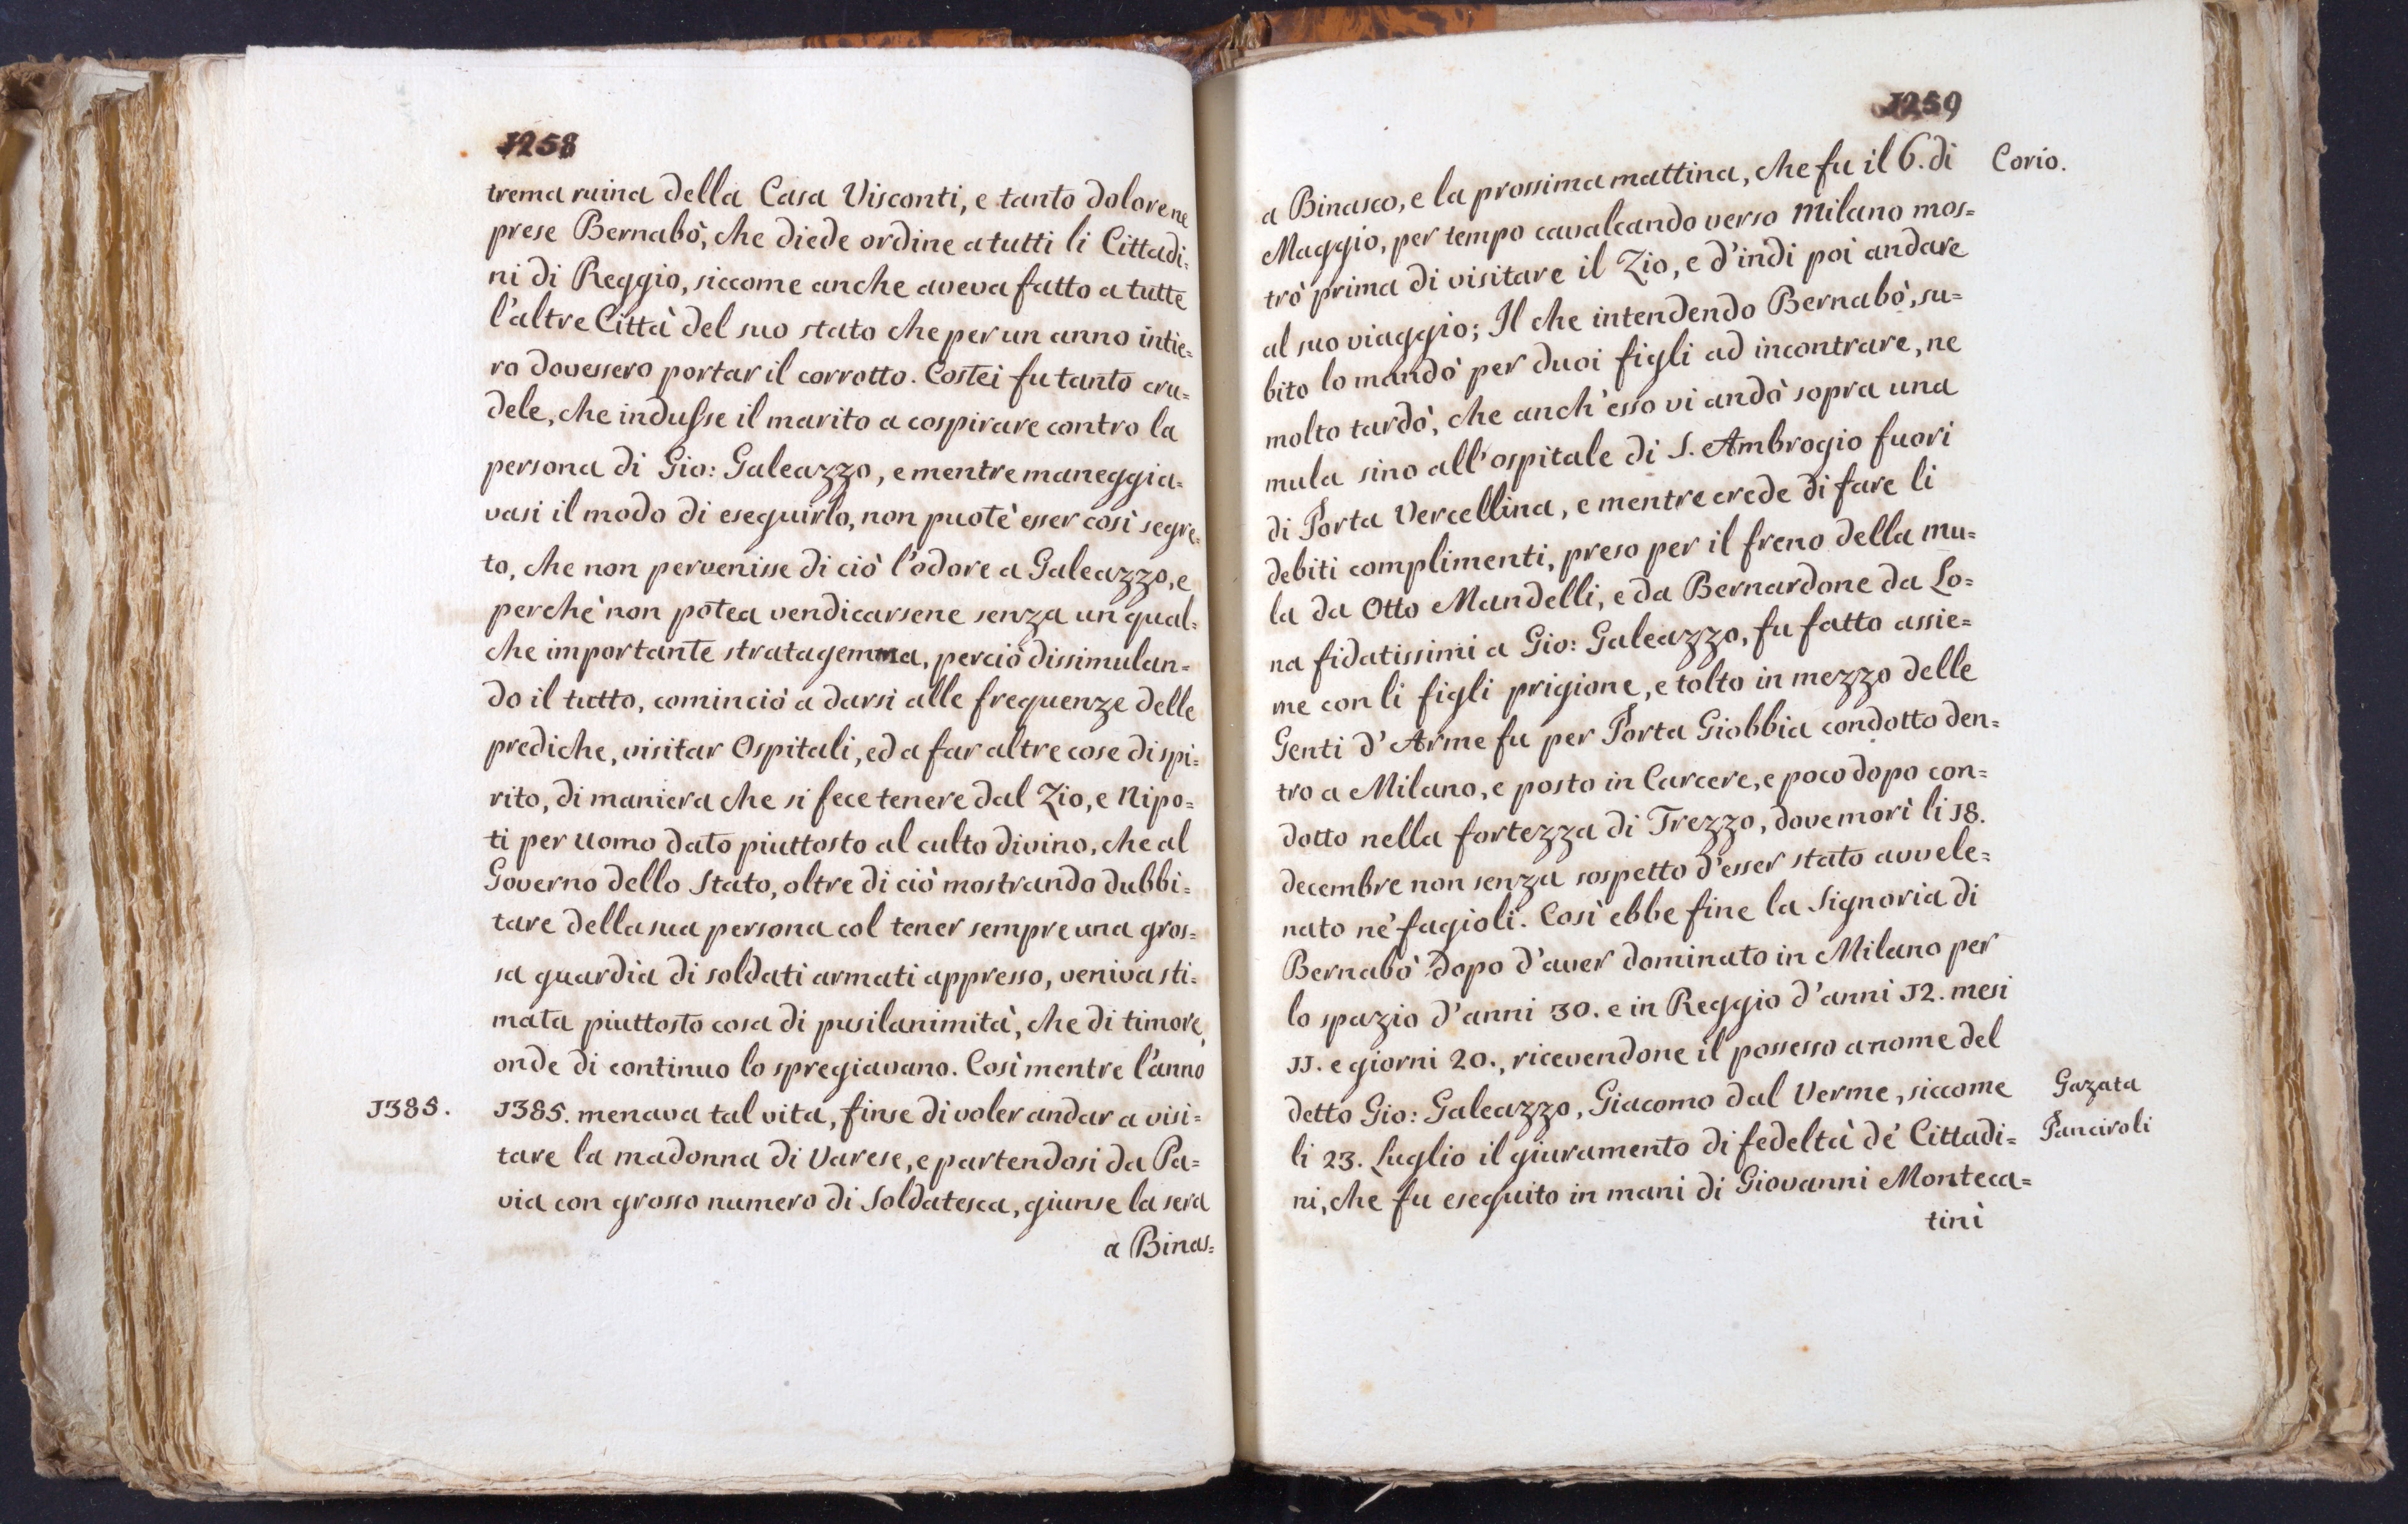 1258
trema ruina della Casa Visconti, e tanto dolore ne
prese Bernabò, che diede ordine a tutti li Cittadi=
ni di Reggio, siccome anche aveva fatto a tutte
l'altre Città del suo stato che per un anno intie=
ro dovessero portar il corrotto. Costei fu tanto cru=
dele, che indusse il marito a cospirare contro la
persona di Gio: Galeazzo, e mentre maneggia=
vasi il modo di eseguirlo, non puotè esser così segre=
to, che non pervenisse di ciò l'odore a Galeazzo, e
perchè non potea vendicarsene senza un qual=
che importante stratagemma, perciò dissimulan=
do il tutto, cominciò a darsi alle frequenze delle
prediche, visitar Ospitali, ed a far altre cose di spi=
rito, di maniera che si fece tenere dal Zio, e Nipo=
ti per uomo dato piuttosto al culto divino, che al
Governo dello Stato, oltre di ciò mostrando dubbi=
tare della sua persona col tener sempre una gros=
sa guardia di soldati armati appresso, veniva sti=
mata piuttosto cosa di pusilanimità, che di timore,
onde di continuo lo spregiavano. Così mentre l'anno
1385.
1385. menava tal vita, finse di voler andar a visi=
tare la madonna di Varese, e partendosi da Pa=
via con grosso numero di Soldatesca, giunse la sera
a Binas=
1259
a Binasco, e la prossima mattina, che fu il 6. di
Corio.
Maggio, per tempo cavalcando verso Milano mos=
trò prima di visitare il Zio, e d'indi poi andare
al suo viaggio; Il che intendendo Bernabò, su=
bito lo mandò per duoi figli ad incontrare, ne
molto tardò, che anch'esso vi andò sopra una
mula sino all'ospitale di S. Ambrogio fuori
di Porta Vercellina, e mentre crede di fare li
debiti complimenti, preso per il freno della mu=
la da Otto Mandelli, e da Bernardone da Lo=
na fidatissimi a Gio: Galeazzo, fu fatto assie=
me con li figli prigione, e tolto in mezzo delle
Genti d'Arme fu per Porta Giobbia condotto den=
tro a Milano, e posto in Carcere, e poco dopo con=
dotto nella fortezza di Trezzo, dove morì li 18.
decembre non senza sospetto d'esser stato avvele=
nato nè fagioli. Così ebbe fine la Signoria di
Bernabò dopo d'aver dominato in Milano per
lo spazio d'anni 30. e in Reggio d'anni 12. mesi
11. e giorni 20., ricevendone il possesso a nome del
detto Gio: Galeazzo, Giacomo dal Verme, siccome
Gazata
li 23. Luglio il giuramento di fedeltà dè Cittadi=
Panciroli
ni, che fu eseguito in mani di Giovanni Monteca=
tini